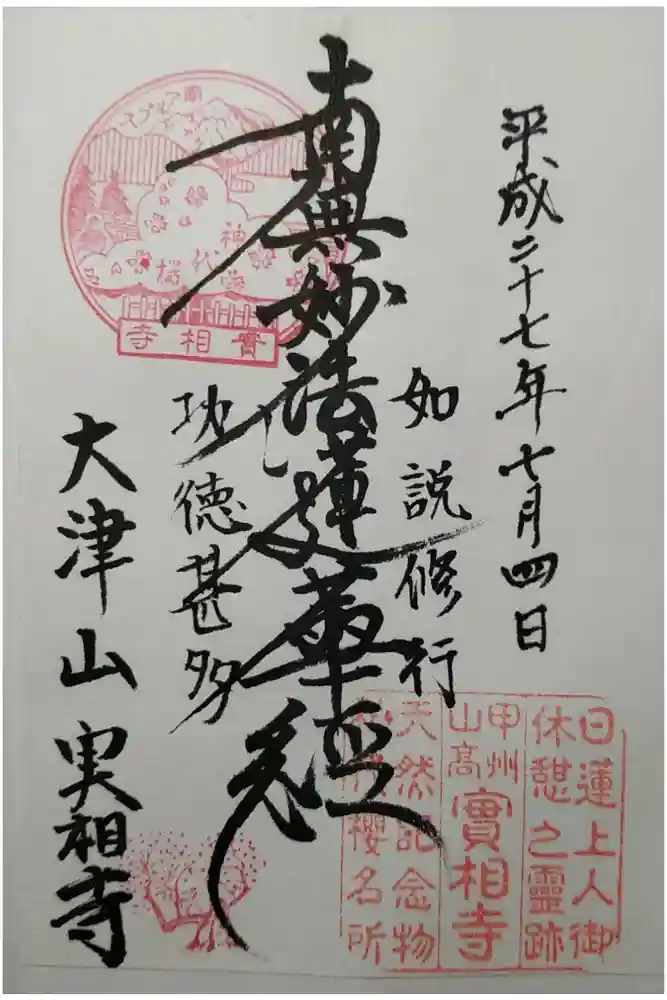 平成二十七年七月四日
如説修行
南無妙法蓮華経
功徳甚多
大津山 実相寺
南アルプス
神代桜
實相寺
日蓮上人御
休憩之靈跡
甲州
山高
實相寺
天然記念物
神代櫻名所